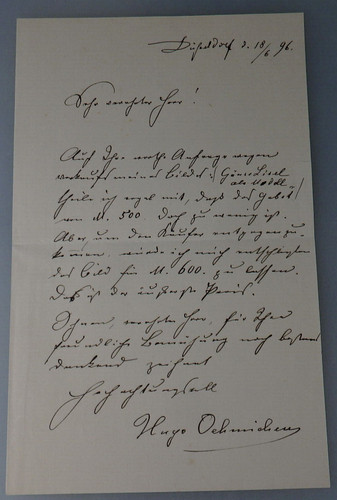 Düsseldorf d. 18/6 96.
Sehr verehrter Herr!
Auf Ihre werthe Anfrage wegen
Verkaufs meines Bildes: Gänseliesel
als Modell
theile ich ergeb. mit, daß das Gebot
von M. 500. doch zu wenig ist.
Aber um dem Käufer entgegen zu
kommen, würde ich mich entschließen
das Bild für M. 600. zu lassen.
Das ist der äußerste Preis.
Ihnen, verehrter Herr, für Ihre
freundliche Bemühung noch bestens
dankend zeichnet
Hochachtungsvoll
Hugo Oehmichen